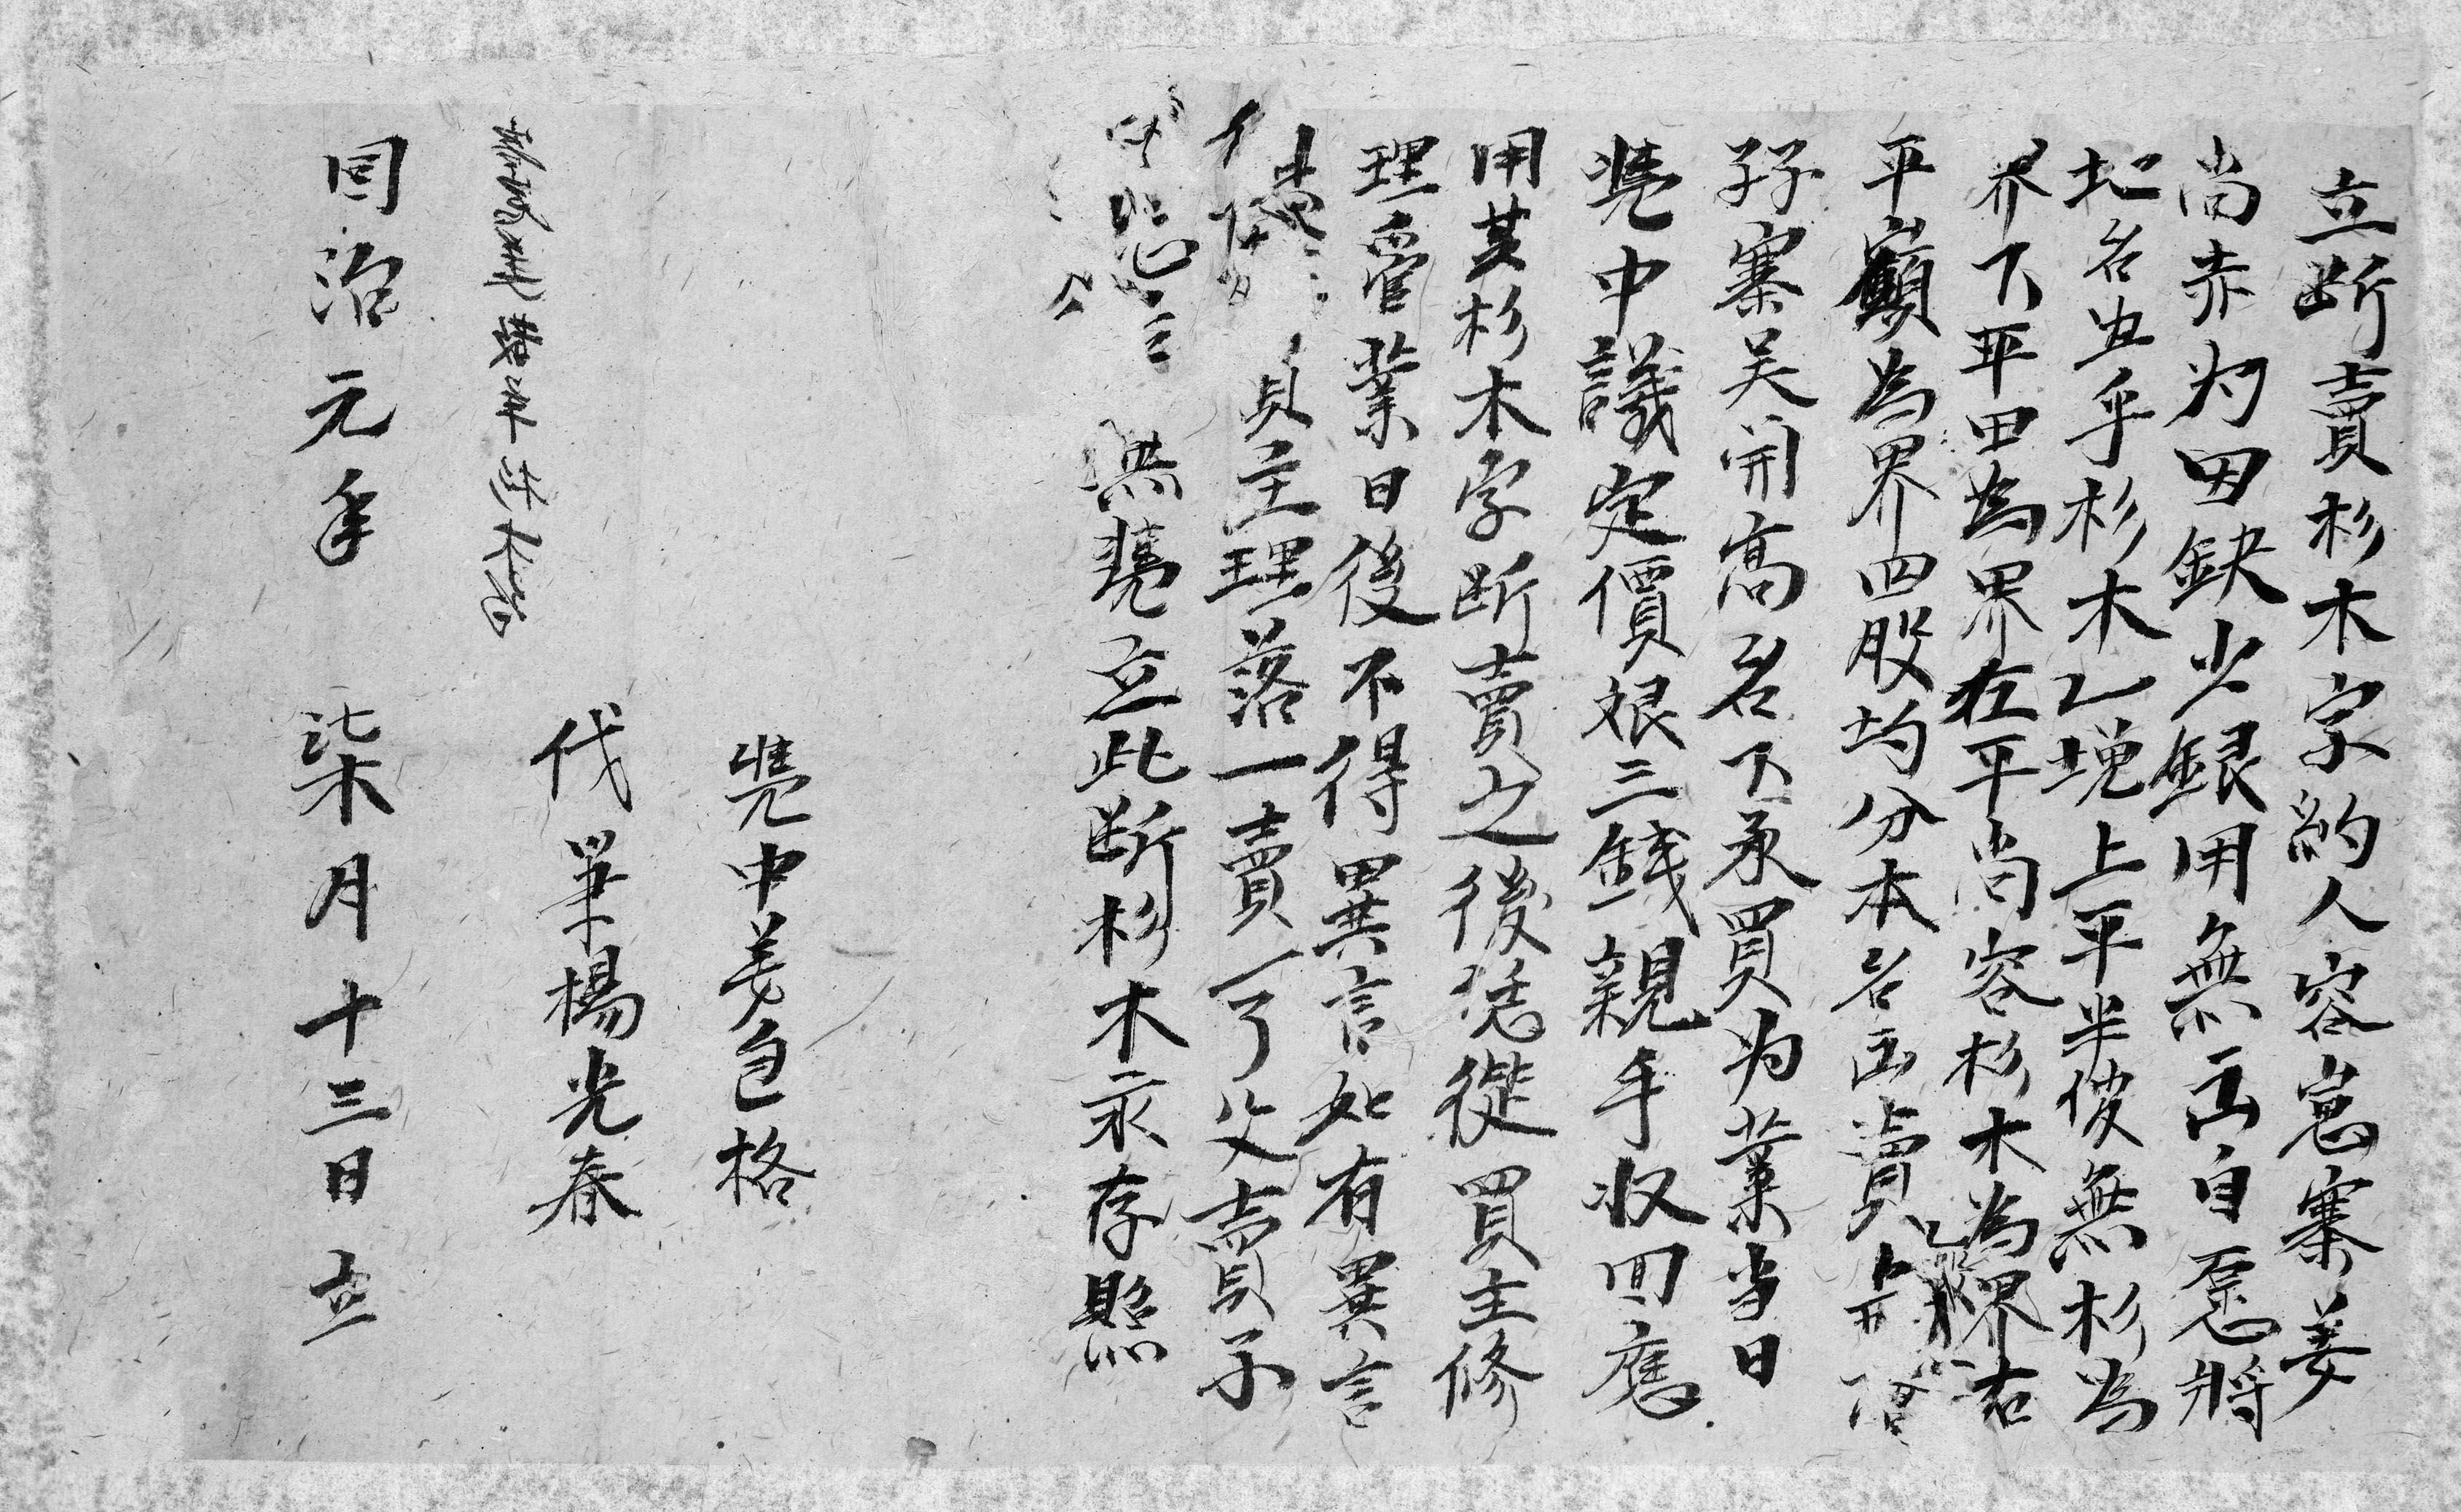 立断賣杉木字約人容嵬寨姜
尚赤为因缺少銀用無出自愿將
地名丑乎杉木乙塊上平半坡無杉為
界下平田為界左平尚容杉木為界右
平嶺為界四股均分本名出賣
孖寨吴開高名下承買为業当日
凴中議定價艮三錢親手收回應
用其杉木字断賣之後恁從買主修
理管業日後不得異言如有異言
賣主理落一賣一了父賣子
無凴立此断杉木永存照
凴中姜包格
代筆楊光春
同治元年 柒月十三日立